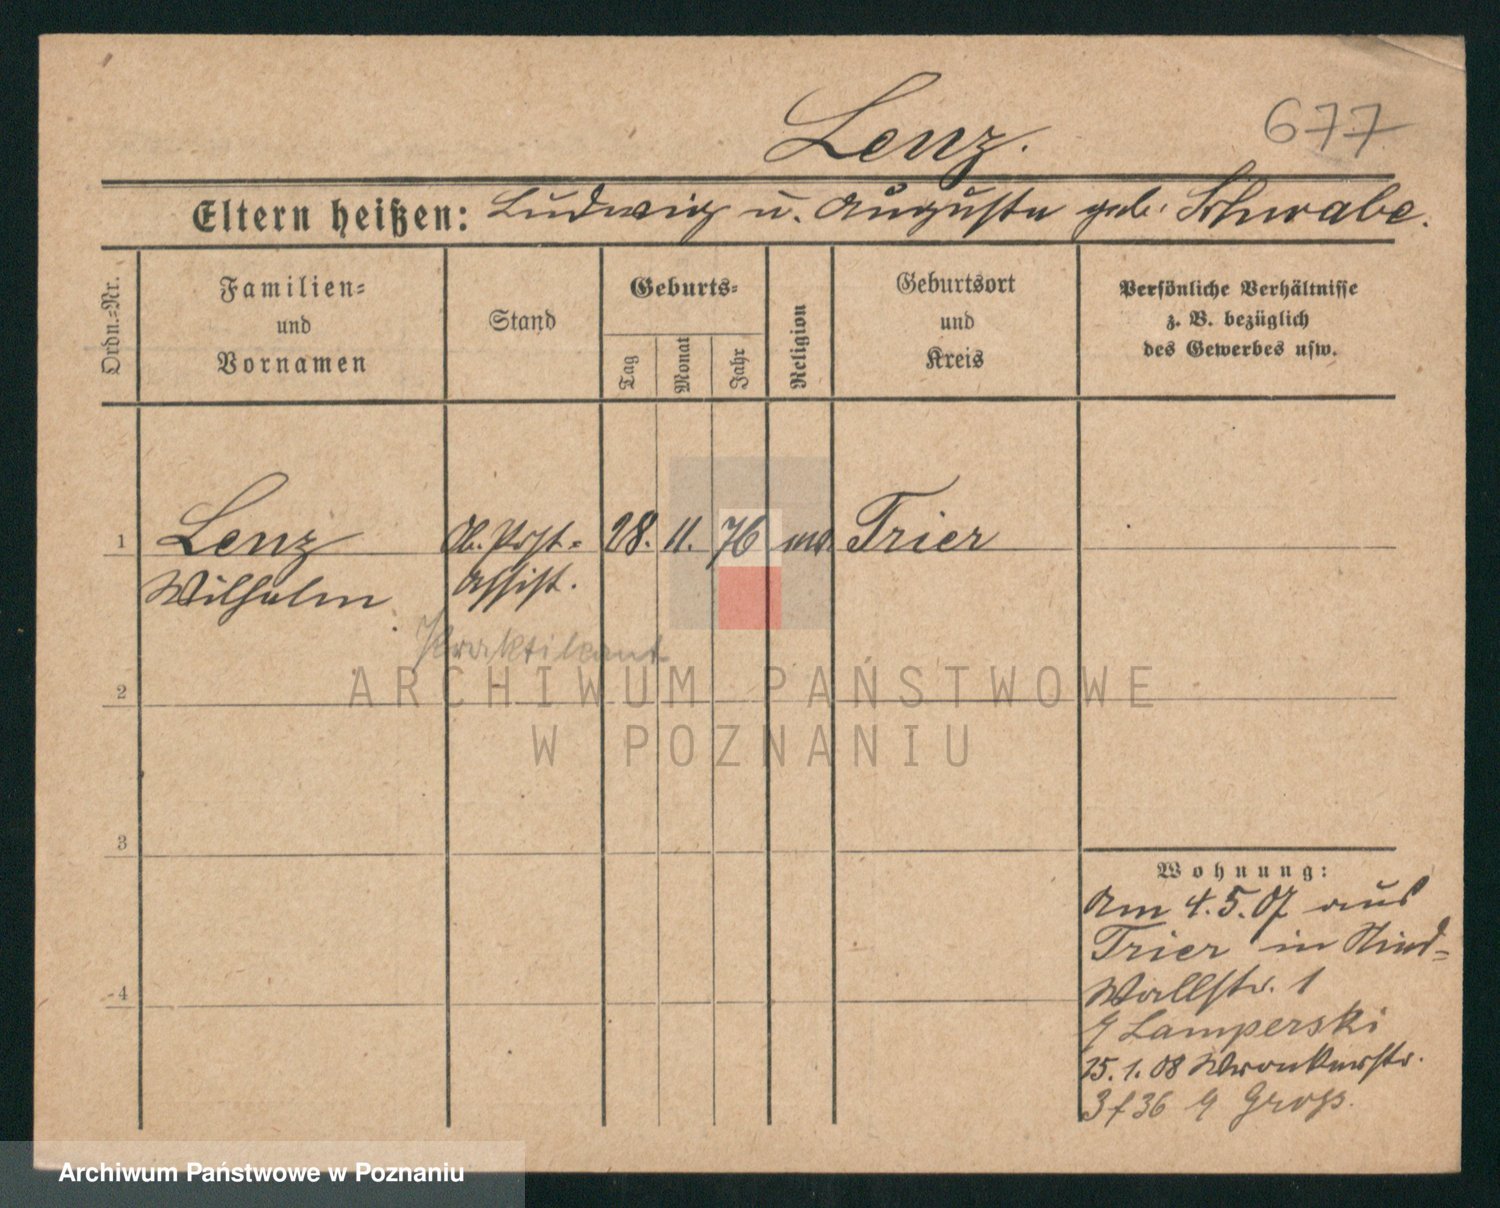 Lenz.
677
Eltern heißen: Ludwig u. Auguste geb. Schwabe.
Ordn.-Nr.
Familien- und Vornamen
Stand
Geburts-
Tag
Monat
Jahr
Religion
Geburtsort und Kreis
Persönliche Verhältnisse
z. B. bezüglich
des Gewerbes usw.
1 Lenz Ob. Post- 28. 11. 76 Trier
Wilhelm Assist.
Praktikant
2
3
4
Wohnung:
Am 4.5.07 aus
Trier in
Wallstr. 1
Lamperski
15.1.08 Wronkerstr.
3/4 36 Gross.
ARCHIWUM PAŃSTWOWE
W POZNANIU
Archiwum Państwowe w Poznaniu